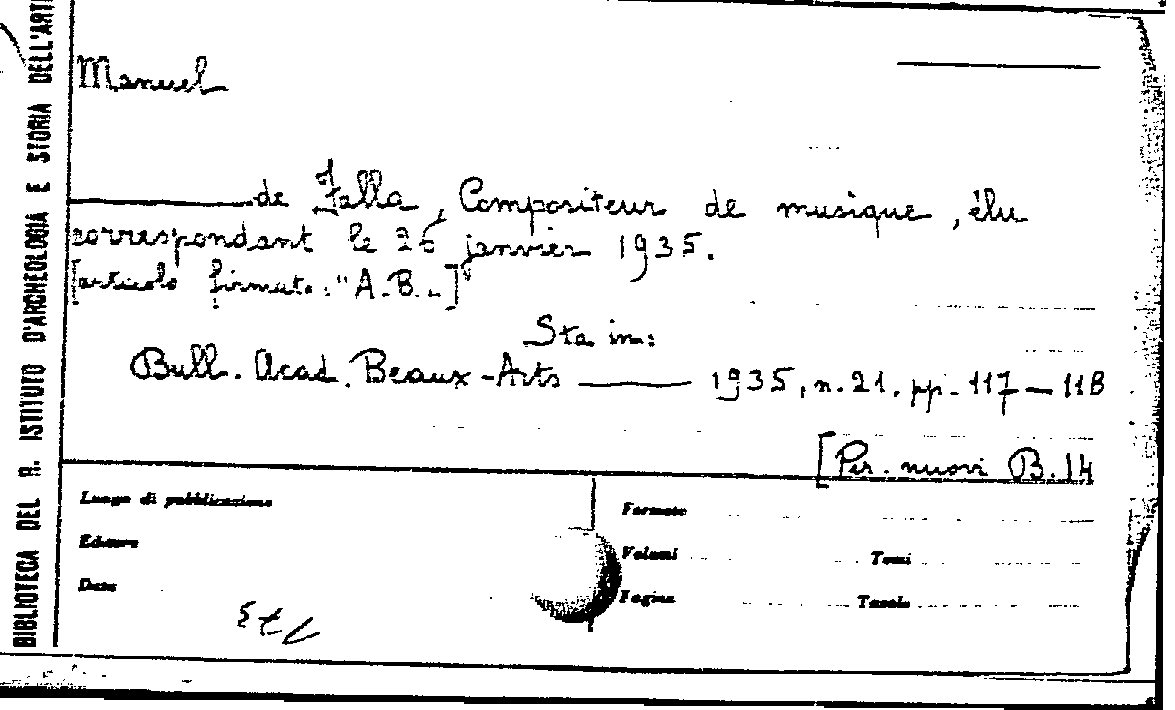 BIBLIOTECA DEL R. ISTITUTO D'ARCHEOLOGIA E STORIA DELL'ARTE
Manuel
de Falla, Compositeur de musique, élu
correspondant le 26 janvier 1935.
[articolo firmato: "A.B."]
Sta in:
Bull. Acad. Beaux-Arts — 1935, n. 21. pp. 117 — 118
[Per. nuovi B. 14
Luogo di pubblicazione
Formato
Editore
Volumi
Tomi
Data
Pagine
Tavole